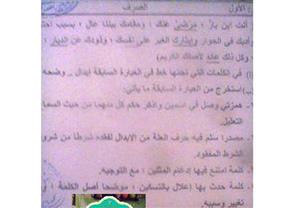 الأول الصرف
أنت ابن بار ؛ مرضي عنك ؛ ومقامك بيننا عال ؛ بسبب
أدبك في الحوار وإيثارك الغير على نفسك ؛ وذودك عن الديار ؛
وكل ذلك عائد لأصلك الكريم)
في الكلمات التي تحتها خط في العبارة السابقة إبدال .. وضحه
استخرج من العبارة السابقة ما يأتي:
همزتي وصل في اسمين واذكر حكم كل منهما من حيث
التعليل.
مصدرا سلم فيه حرف العلة من الإبدال لفقده شرطا من شروط
الشرط المفقود.
كلمة امتنع فيها إدغام المثلين ؛ مع التوجيه.
كلمة حدث بها (إعلال بالتسكين) موضحا أصل الكلمة ؛
تغيير وسببه.